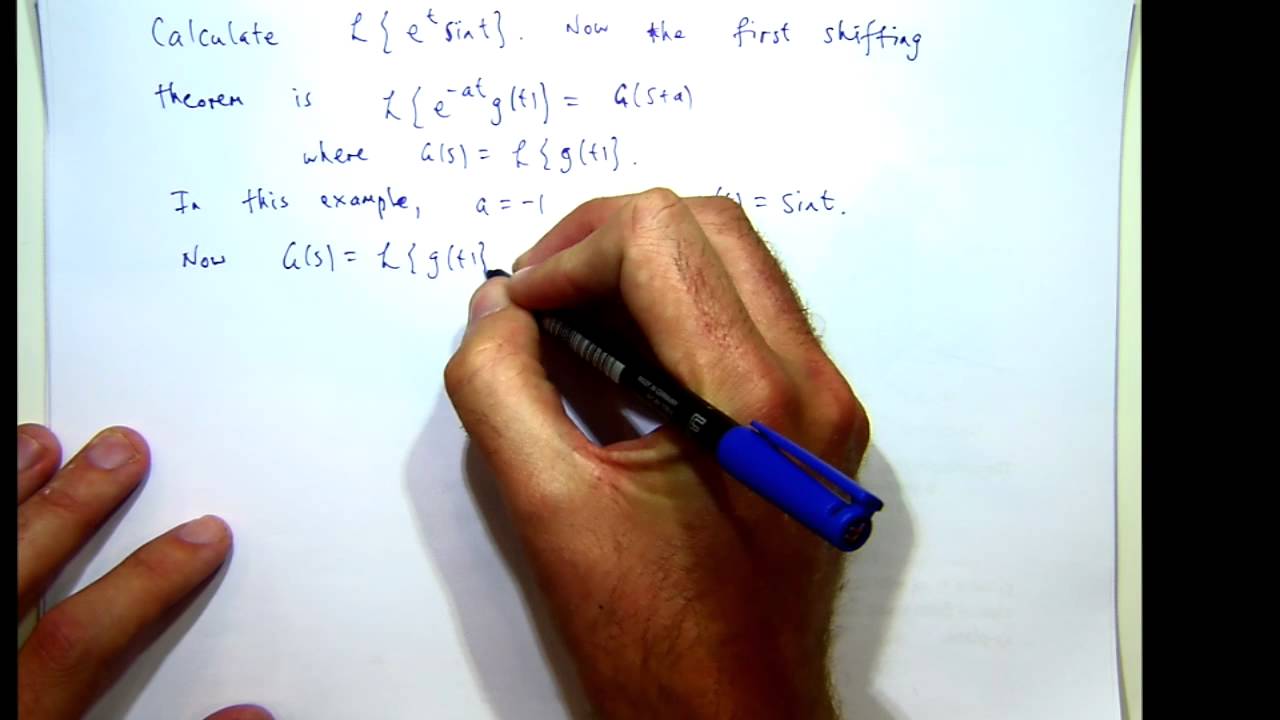 Calculate ℒ{e^t sint}. Now the first shifting
theorem is ℒ{e^-at g(t)} = G(s+a)
where G(s) = ℒ{g(t)}.
In this example, a = -1 = sint.
Now G(s) = ℒ{g(t)}